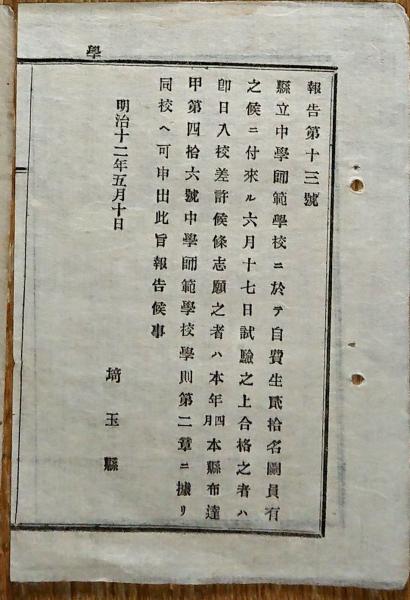 報告第十三號
縣立中學師範學校ニ於テ自費生貳拾名闕員有
之候ニ付來ル六月十七日試驗之上合格之者ハ
卽日入校差許候條志願之者ハ本年四月本縣布達
甲第四拾六號中學師範學校學則第二章ニ據リ
同校ヘ可申出此旨報告候事
明治十二年五月十日
埼玉縣
學